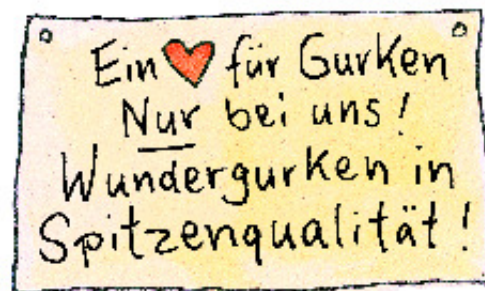 Ein ❤ für Gurken
Nur bei uns!
Wundergurken in
Spitzenqualität!